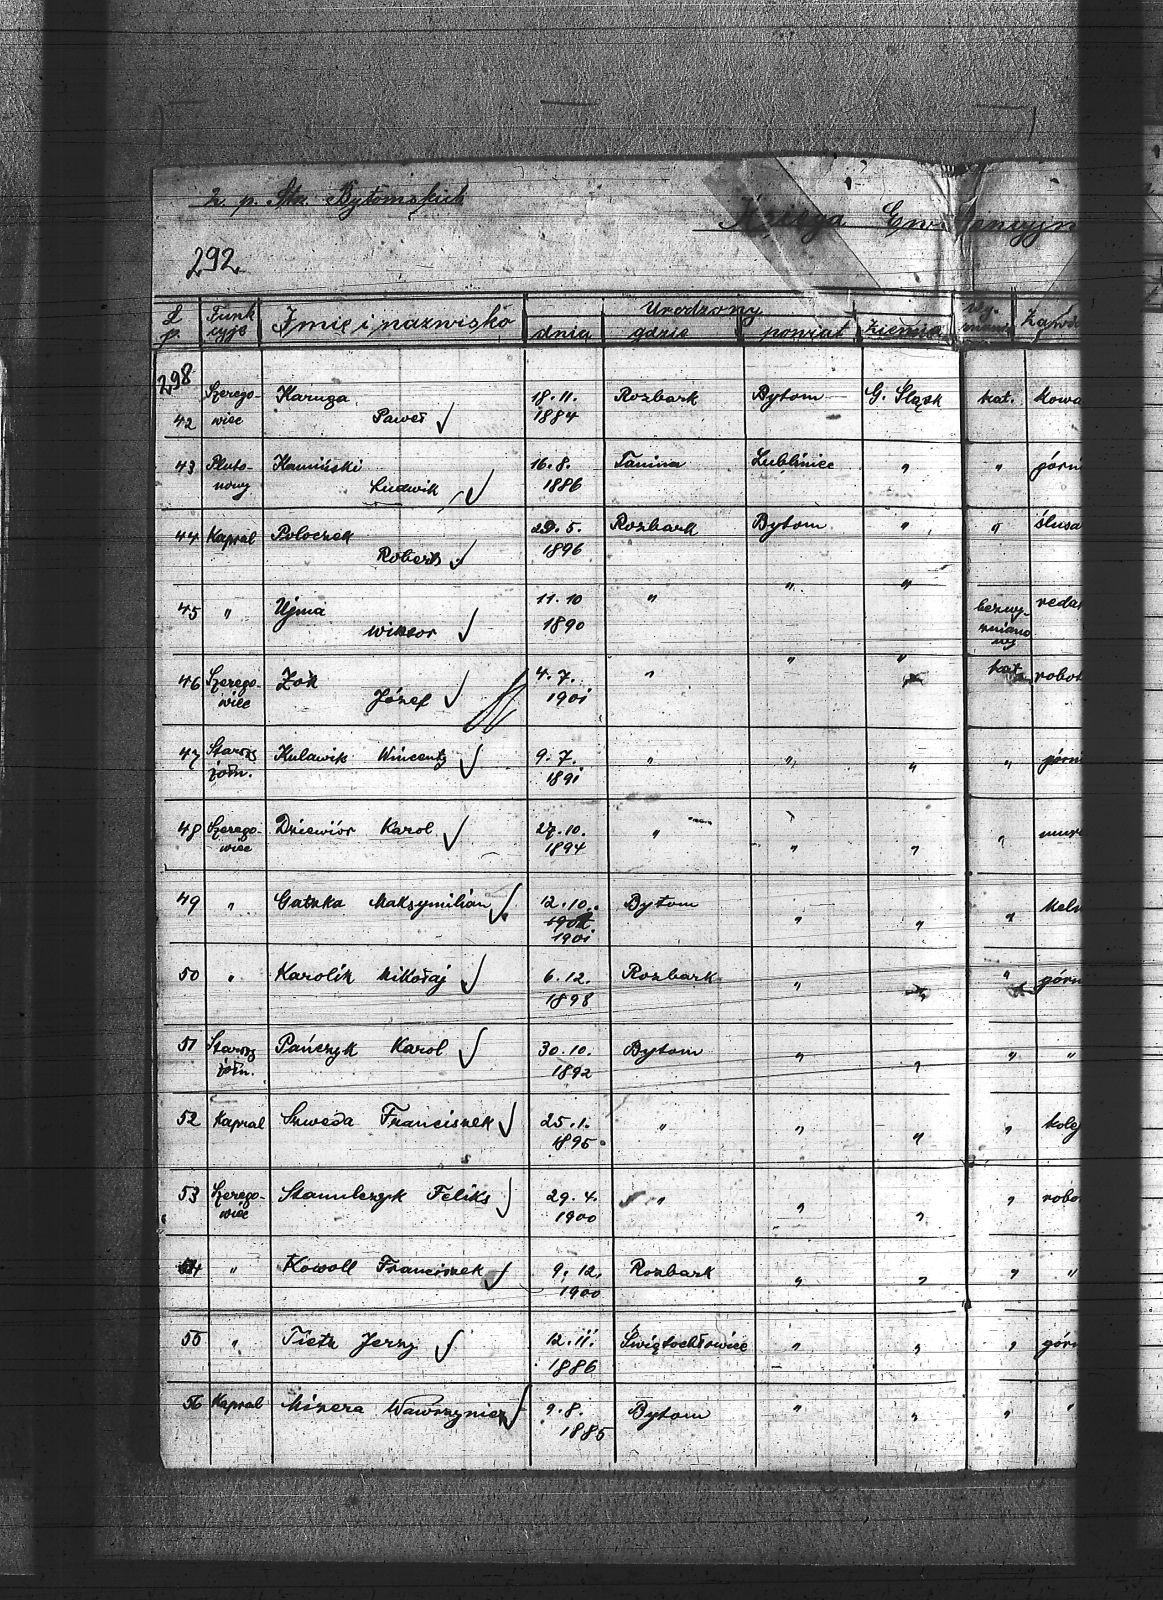 2 p. Strz. Bytomskich
Księga
292
L. p. Funkcyje Imię i nazwisko Urodzony dnia gdzie powiat ziemia
298
42 Szeregowiec Karuga Paweł 18.11. 1884 Rozbark Bytom G. Śląsk kat. kowa
43 Plutonowy Kamiński Ludwik 16.8. 1886 Tanina Lubliniec " " górni
44 Kapral Poloczek Robert 29.5. 1896 Rozbark Bytom " " ślusa
45 " Ujma Wiktor 11.10 1890 " " " bezwyznaniowy redak
46 Szeregowiec Żok Józef 4.7. 1901 " " " kat. robot
47 Starszy żołn. Kulawik Wincenty 9.7. 1891 " " " " górni
48 Szeregowiec Dziewiór Karol 27.10. 1894 " " " " mura
49 " Gatzka Maksymilian 12.10. 1901 Bytom " " " keln
50 " Karolik Mikołaj 6.12. 1898 Rozbark " " " górni
51 Starszy żołn. Pańczyk Karol 30.10. 1892 Bytom " " " "
52 Kapral Szweda Franciszek 25.1. 1895 " " " " kolej
53 Szeregowiec Stambczyk Feliks 29.4. 1900 " " " " robo
54 " Kowoll Franciszek 9.12. 1900 Rozbark " " " "
55 " Tietz Jerzy 12.11. 1886 Świętochłowice " " " górni
56 Kapral Mizera Wawrzyniec 9.8. 1885 Bytom " " " "